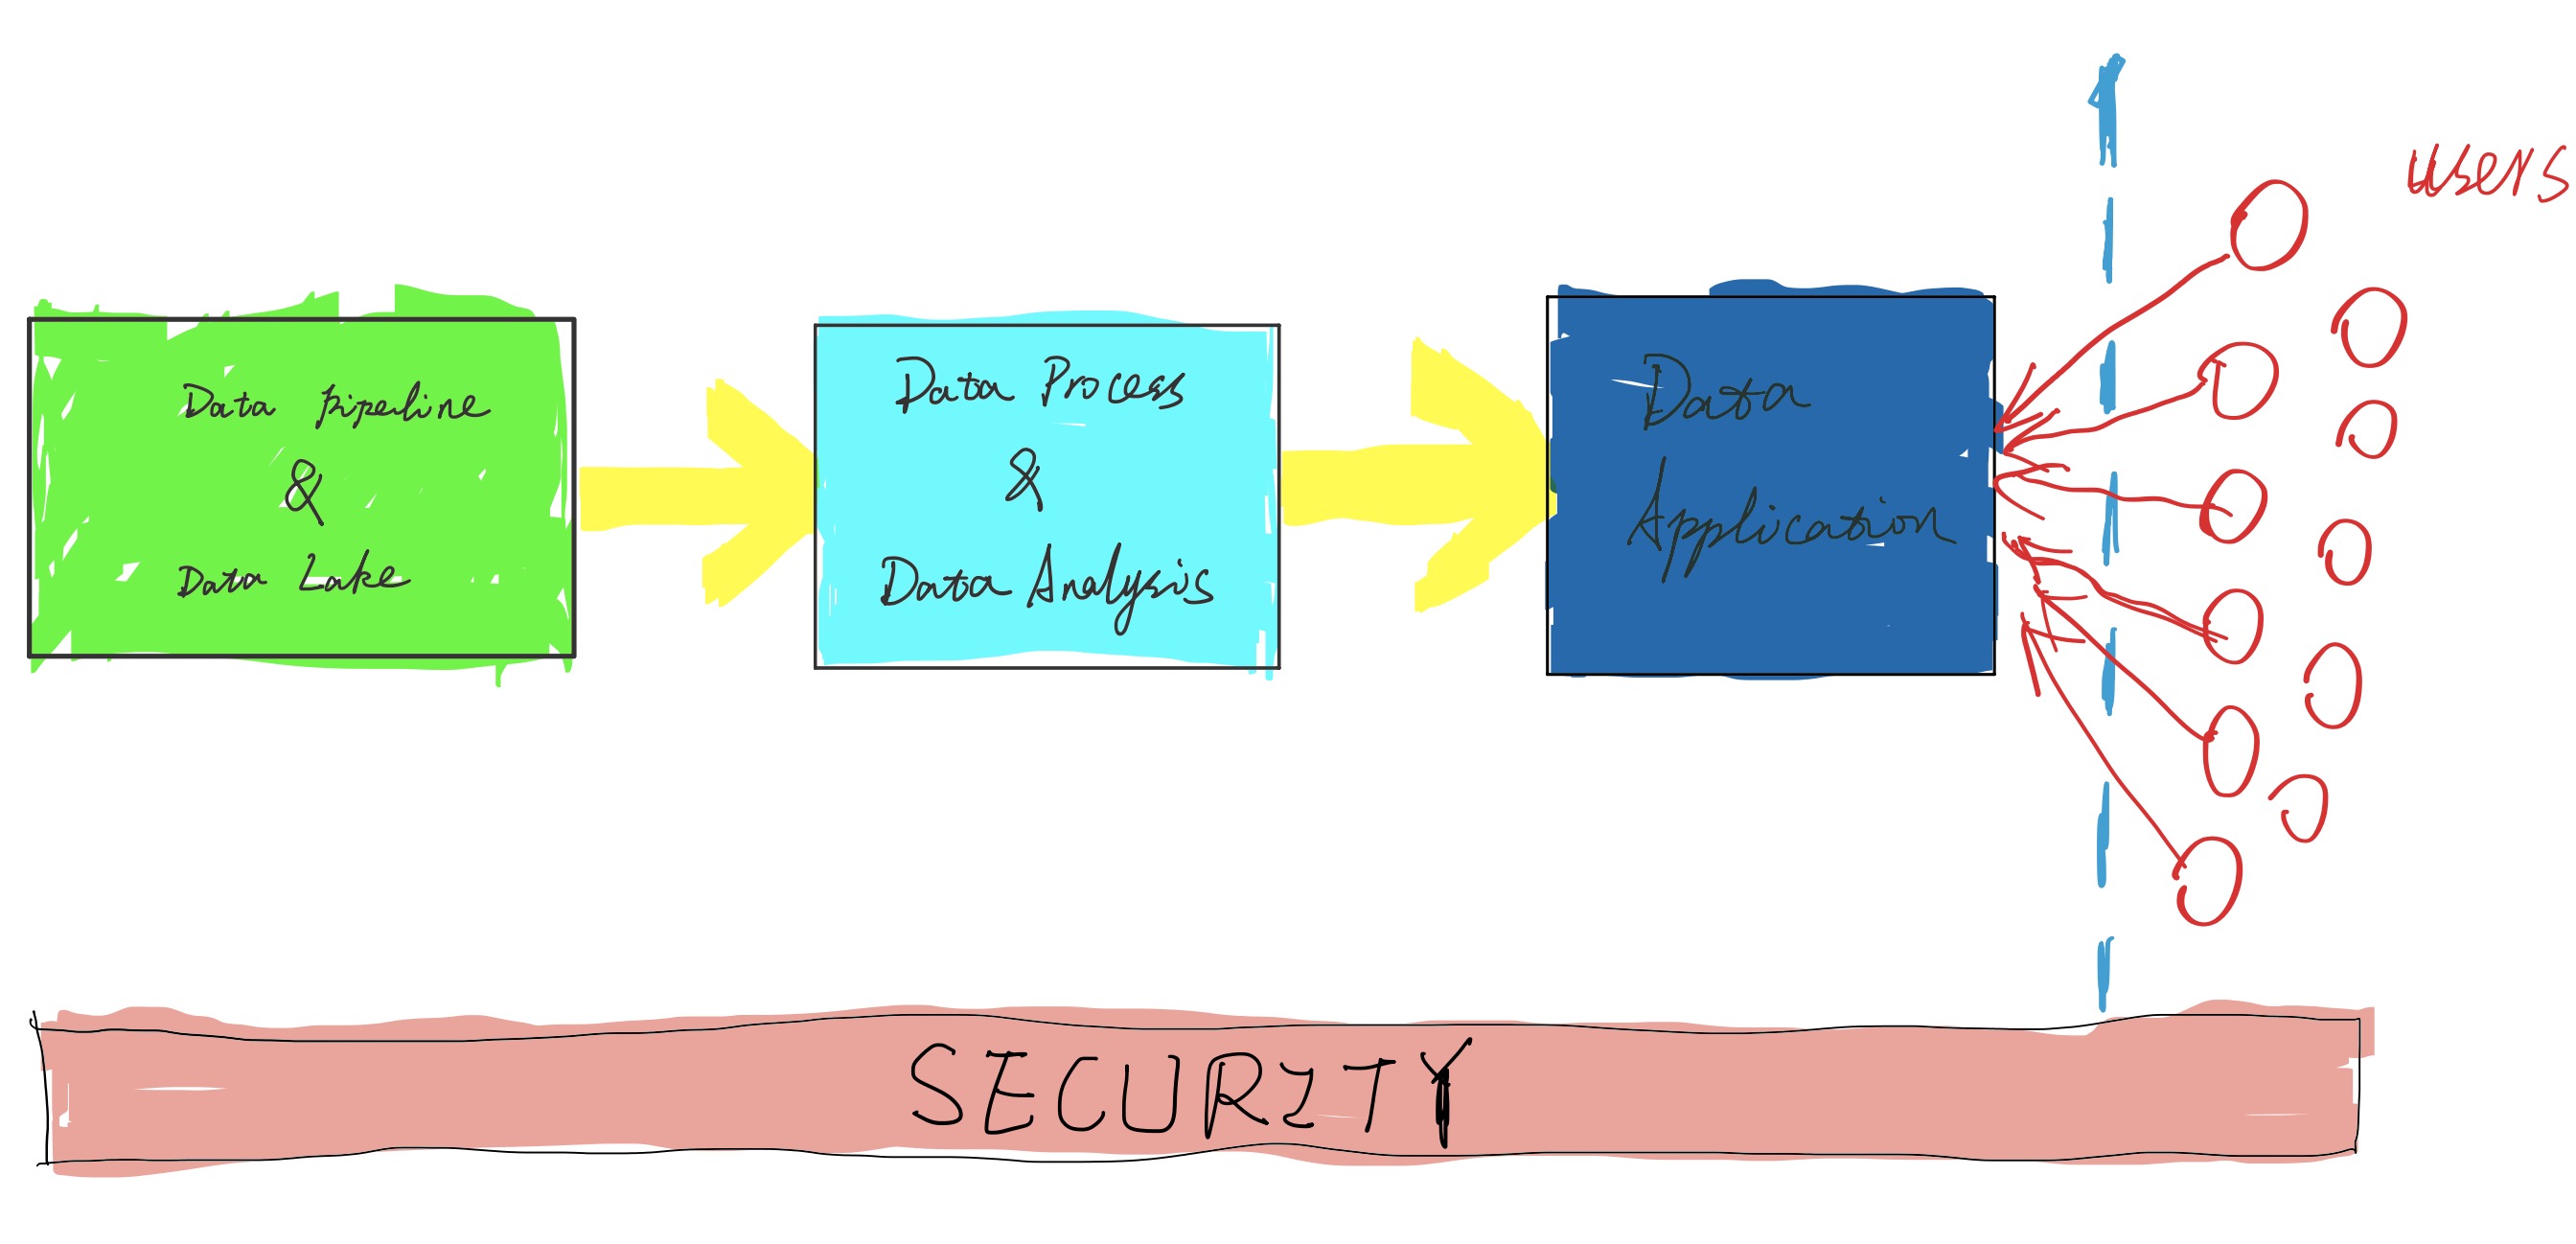 users
Data Pipeline
&
Data Lake
Data Process
&
Data Analysis
Data
Application
SECURITY